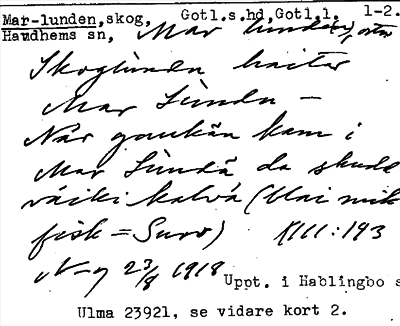 Mar-lunden,skog, Gotl.s.hd,Gotl.l. 1-2.
Havdhems sn, Mar lunden,
Skoglunden haitar
Mar Lùndn —
När gaukän kam i
Mar Lùndä da skude
väiki kalvä (blai mik
fisk = Surv) KIII:193
N-y 23/8 1918
Uppt. i Hablingbo s
Ulma 23921, se vidare kort 2.